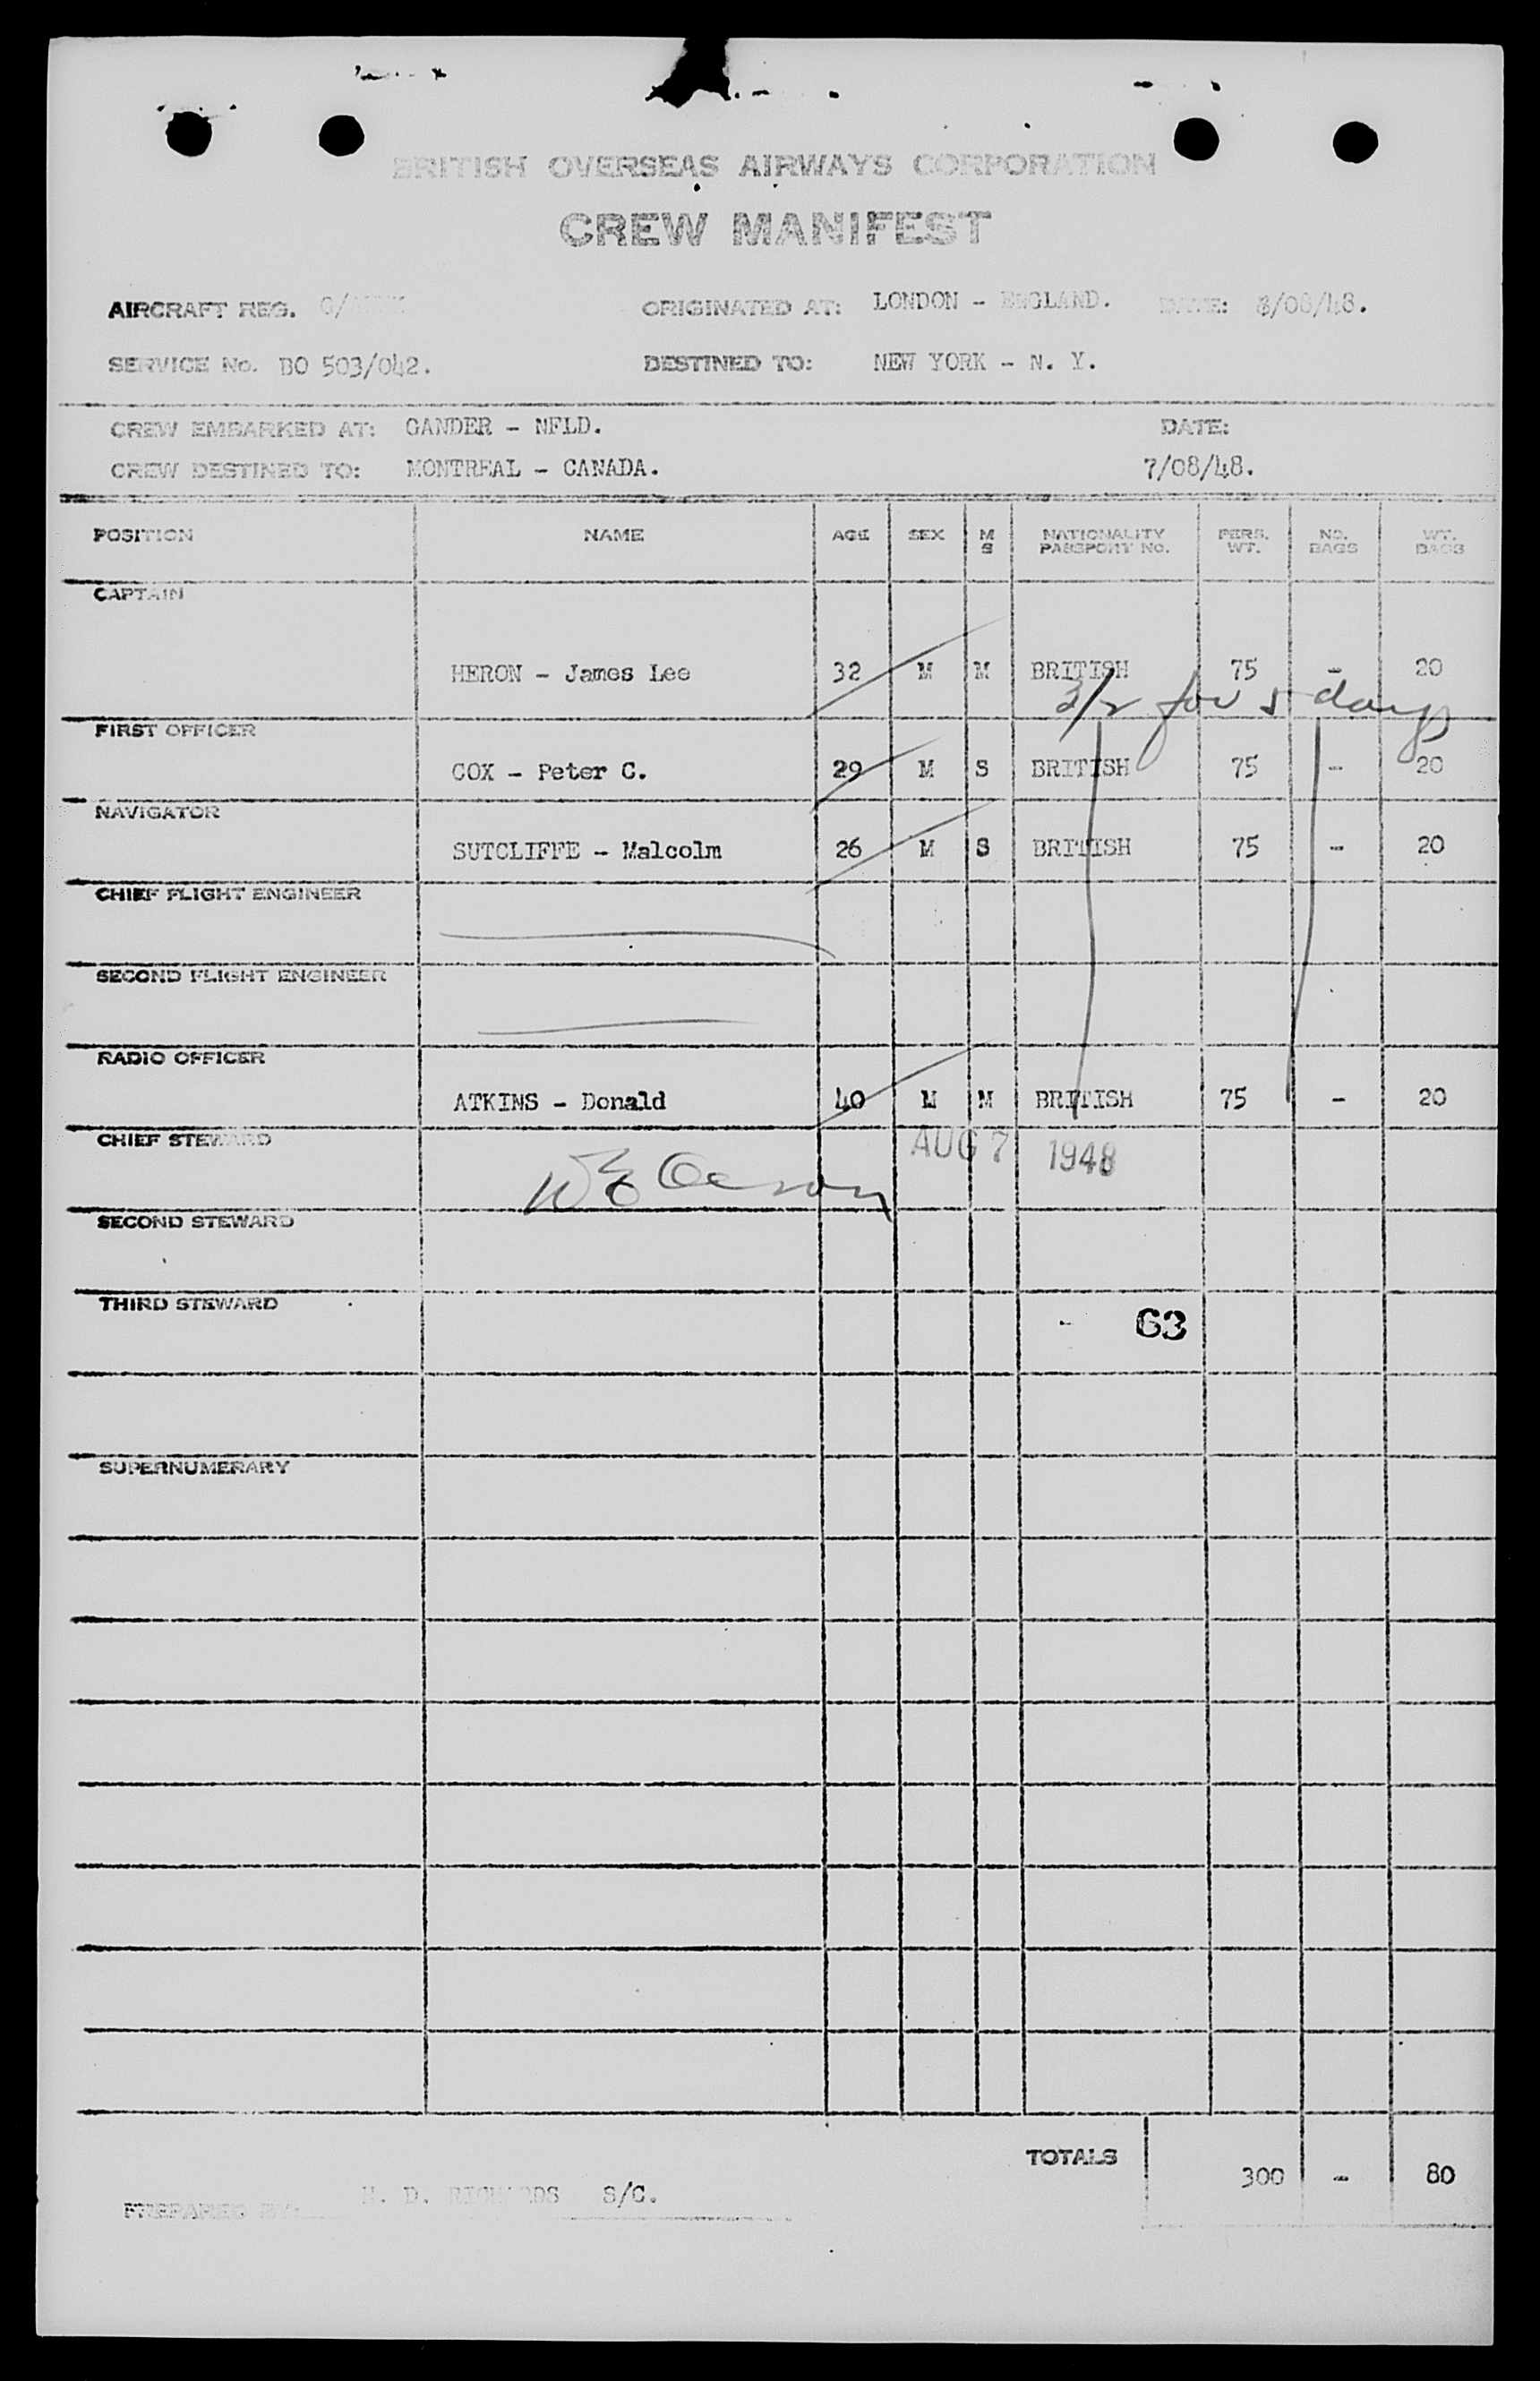 BRITISH OVERSEAS AIRWAYS CORPORATION
CREW MANIFEST
AIRCRAFT REG. G/ ORIGINATED AT: LONDON - ENGLAND. DATE: /08/48.
SERVICE No. BO 503/042. DESTINED TO: NEW YORK - N. Y.
CREW EMBARKED AT: GANDER - NFLD. DATE:
CREW DESTINED TO: MONTREAL - CANADA. 7/08/48.
POSITION NAME AGE SEX M S NATIONALITY PASSPORT NO. PERS. WT. NO. BAGS WT. BAGS
CAPTAIN
HERON - James Lee 32 M M BRITISH 75 - 20
3/2 for 5 days
FIRST OFFICER
COX - Peter C. 29 M S BRITISH 75 - 20
NAVIGATOR
SUTCLIFFE - Malcolm 26 M S BRITISH 75 - 20
CHIEF FLIGHT ENGINEER
SECOND FLIGHT ENGINEER
RADIO OFFICER
ATKINS - Donald 40 M M BRITISH 75 - 20
CHIEF STEWARD
AUG 7 1948
SECOND STEWARD
THIRD STEWARD
63
SUPERNUMERARY
TOTALS
300 - 80
PREPARED BY: H. D. RICHARDS S/C.